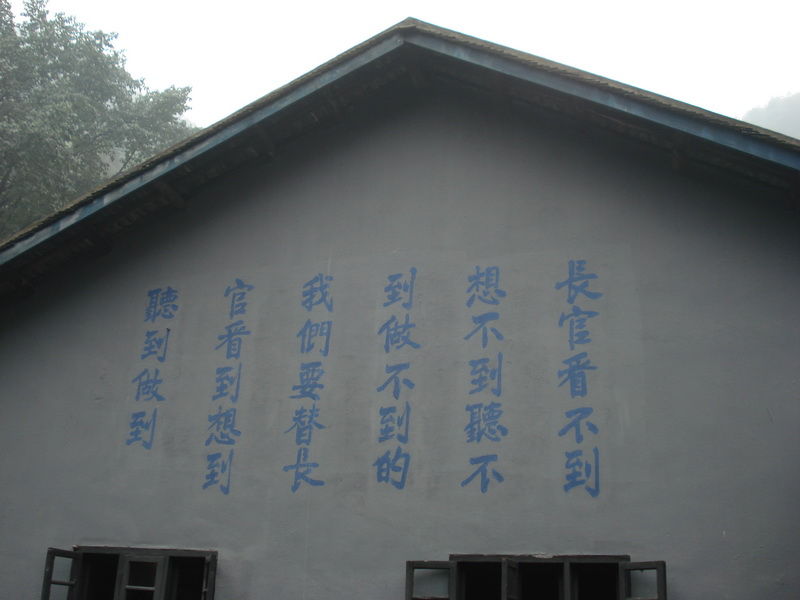 長官看不到
想不到聽不
到做不到的
我們要替长
官看到想到
聽到做到